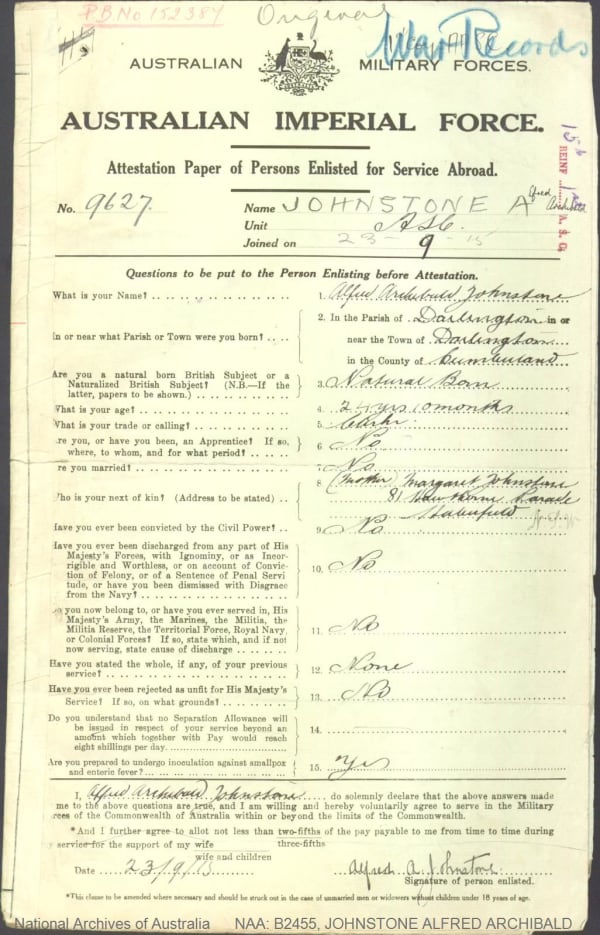 P.B. No 152384
Original
War Records
AUSTRALIAN MILITARY FORCES.
AUSTRALIAN IMPERIAL FORCE.
Attestation Paper of Persons Enlisted for Service Abroad.
15th
REINF A.S.C.
No. 9627. Name JOHNSTONE Alfred Archibald
Unit ASC.
Joined on 23-9-15
Questions to be put to the Person Enlisting before Attestation.
What is your Name? 1. Alfred Archibald Johnstone
In or near what Parish or Town were you born? 2. In the Parish of Darlington in or
near the Town of Darlington
in the County of Cumberland
Are you a natural born British Subject or a
Naturalized British Subject? (N.B.—If the
latter, papers to be shown.) 3. Natural Born
What is your age? 4. 24 yrs 10 months
What is your trade or calling? 5. Clerk
re you, or have you been, an Apprentice? If so,
where, to whom, and for what period? 6. No
re you married? 7. No
ho is your next of kin? (Address to be stated) 8. (Mother) Margaret Johnstone
81 Hawthorne Parade
Haberfield
Have you ever been convicted by the Civil Power? 9. No
Have you ever been discharged from any part of His
Majesty's Forces, with Ignominy, or as Incor-
rigible and Worthless, or on account of Convic-
tion of Felony, or of a Sentence of Penal Servi
tude, or have you been dismissed with Disgrace
from the Navy? 10. No
o you now belong to, or have you ever served in, His
Majesty's Army, the Marines, the Militia, the
Militia Reserve, the Territorial Force, Royal Navy,
or Colonial Forces? If so, state which, and if not
now serving, state cause of discharge 11. No
Have you stated the whole, if any, of your previous
service? 12. None
Have you ever been rejected as unfit for His Majesty's
Service? If so, on what grounds? 13. No
Do you understand that no Separation Allowance will
be issued in respect of your service beyond an
amount which together with Pay would reach
eight shillings per day. 14.
Are you prepared to undergo inoculation against smallpox
and enteric fever? 15. Yes
I, Alfred Archibald Johnstone do solemnly declare that the above answers made
me to the above questions are true, and I am willing and hereby voluntarily agree to serve in the Military
rces of the Commonwealth of Australia within or beyond the limits of the Commonwealth.
*And I further agree to allot not less than two-fifths of the pay payable to me from time to time during
three-fifths
y service for the support of my wife
wife and children
Date 23/9/15 Alfred A. Johnstone
Signature of person enlisted.
*This clause to be amended where necessary and should be struck out in the case of unmarried men or widowers without children under 18 years of age.
National Archives of Australia NAA: B2455, JOHNSTONE ALFRED ARCHIBALD